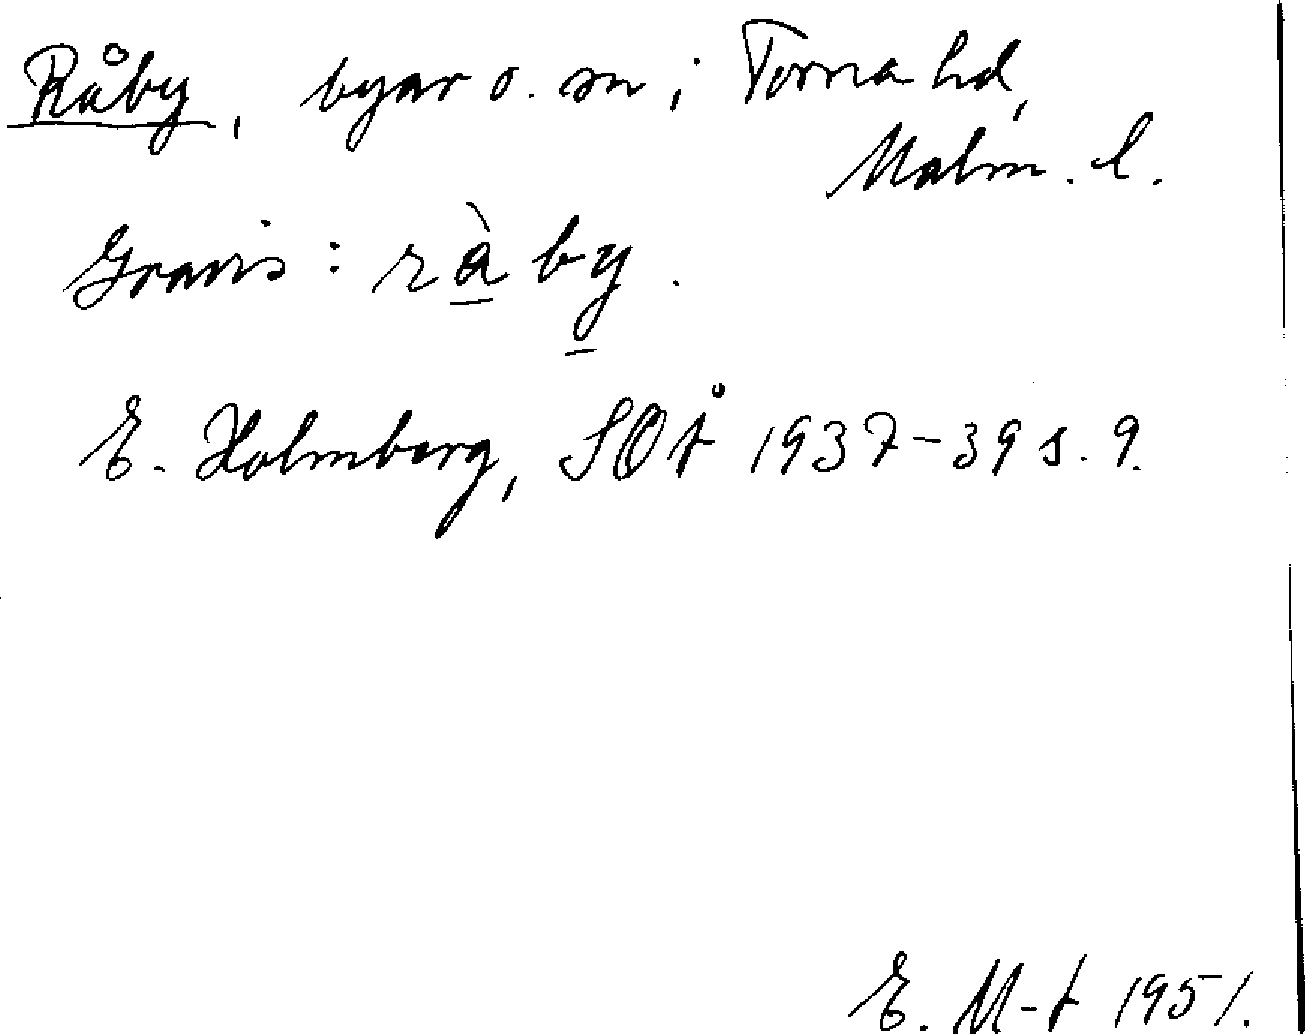 Råby, byar o. sn i Torna hd,
Malm. l.
Gravis: ràby.
E. Holmberg, SOÅ 1937-39 s. 9.
E. M-t 1951.